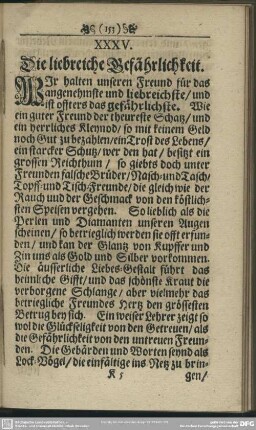 (153)
XXXV.
Die liebreiche Gefährlichkeit.
WIr halten unseren Freund für das
angenehmste und liebreichste/ und
ist offters das gefährlichste. Wie
ein guter Freund der theureste Schatz/ und
ein herrliches Kleynod/ so mit keinem Geld
noch Gut zu bezahlen/ ein Trost des Lebens/
ein starcker Schutz/ wer den hat/ besitzt ein
grossen Reichthum/ so giebts doch unter
Freunden falsche Brüder/ Nasch- und Tasch/
Topff- und Tisch-Freunde/ die gleich wie der
Rauch und der Geschmack von den köstlich-
sten Speisen vergehen. So lieblich als die
Perlen und Diamanten unseren Augen
scheinen/ so betrieglich werden sie offt erfun-
den/ und kan der Glanz von Kupffer und
Zin uns als Gold und Silber vorkommen.
Die äusserliche Liebes-Gestalt führt das
heimliche Gifft/ und das schönste Kraut die
verborgene Schlange/ aber vielmehr das
betriegliche Freundes Hertz den grössesten
Betrug bey sich. Ein weiser Lehrer zeigt so
wol die Glückseligkeit von den Getreuen/ als
die Gefährlichkeit von den untreuen Freun-
den. Die Gebärden und Worten seynd als
Lock-Vögel/ die einfältige ins Netz zu brin-
K 5 gen/